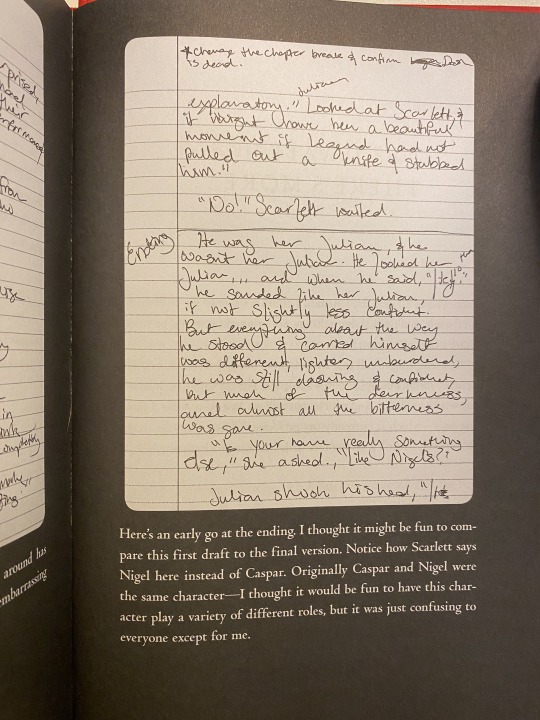 * Change the chapter break & confirm Dan
is dead.
Julian
explanatory." Looked at Scarlett, &
it might have been a beautiful
moment if Legend had not
pulled out a knife & stabbed
him."
"No!" Scarlett wailed.
Ending
He was her Julian, & he
wasn't her Julian. He looked her
Julian... and when he said,
he sounded like her Julian,
if not slightly less confident.
But everything about the way
he stood & carried himself
was different, lighter, unburdened,
he was still dashing & confident,
but much of the darkness,
and almost all the bitterness
was gone.
"Is your name really something
else," she asked., "Like Nigels?"
Julian shook his head, "It
Here's an early go at the ending. I thought it might be fun to com-
pare this first draft to the final version. Notice how Scarlett says
Nigel here instead of Caspar. Originally Caspar and Nigel were
the same character—I thought it would be fun to have this char-
acter play a variety of different roles, but it was just confusing to
everyone except for me.
around has
embarrassing